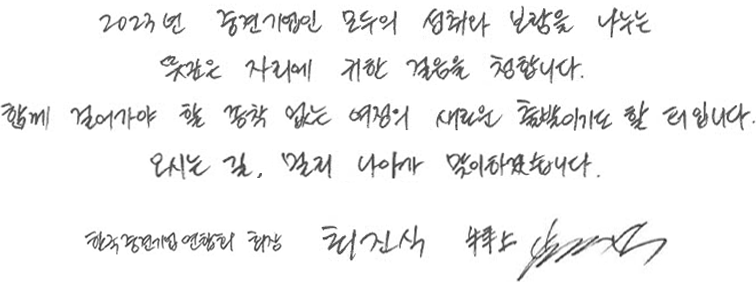 2023년 중견기업인 모두의 성취와 보람을 나누는
뜻깊은 자리에 귀한 걸음을 청합니다.
함께 걸어가야 할 종착 없는 여정의 새로운 출발이기도 할 터입니다.
오시는 길, 멀리 나아가 맞이하겠습니다.
한국중견기업연합회 회장 최진식 拜上